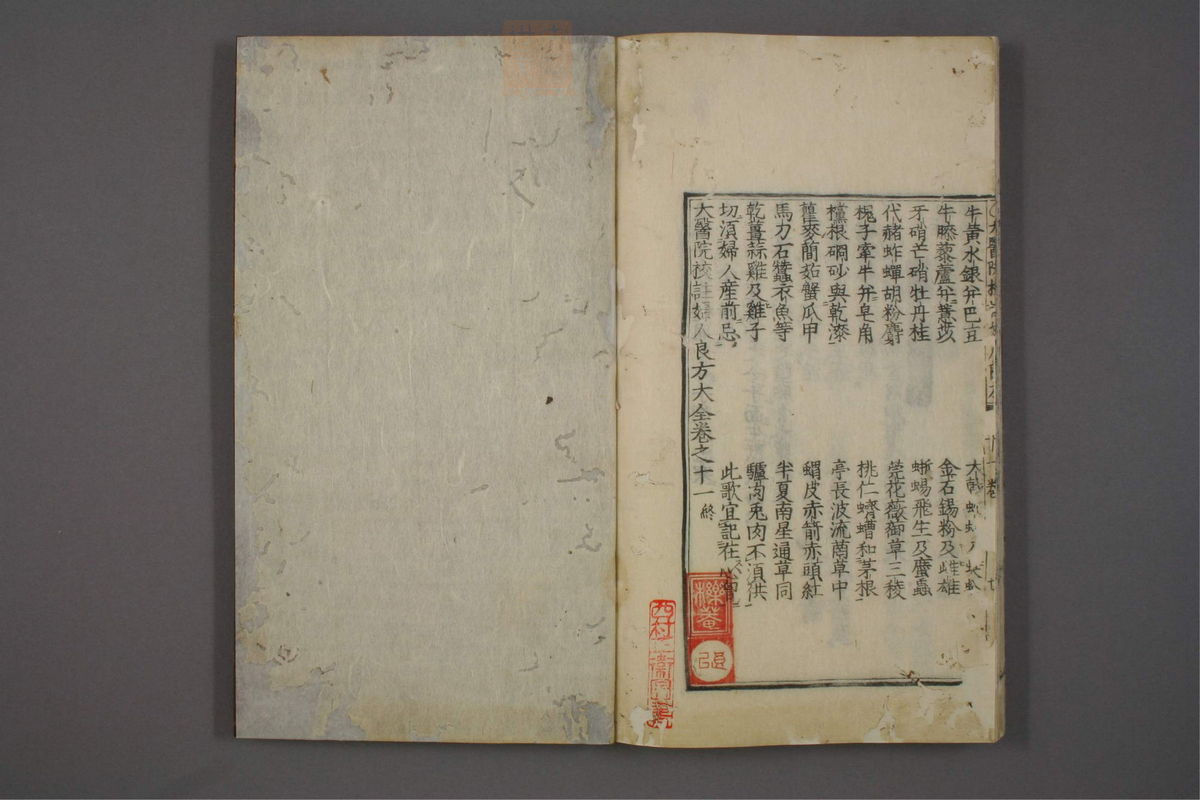 牛黄水銀并巴豆 大戟
牛膝藜蘆并薏苡 金石錫粉及雌雄
牙硝芒硝牡丹桂 蜥蜴飛生及䗪蟲
代赭蚱蟬胡粉麝 芫花薇御草三稜
槐子牽牛并皂角 桃仁蠐螬和茅根
欓根硇砂與乾漆 亭長波流茵草中
瞿麥䕡茹蟹爪甲 蝟皮赤箭赤頭紅
馬刀石蠶衣魚等 半夏南星通草同
乾薑蒜雞及雞子 驢肉兎肉不湏供
切湏婦人産前忌 此歌宜記在心胷
大醫院挍註婦人良方大全卷之十一終
櫟菴